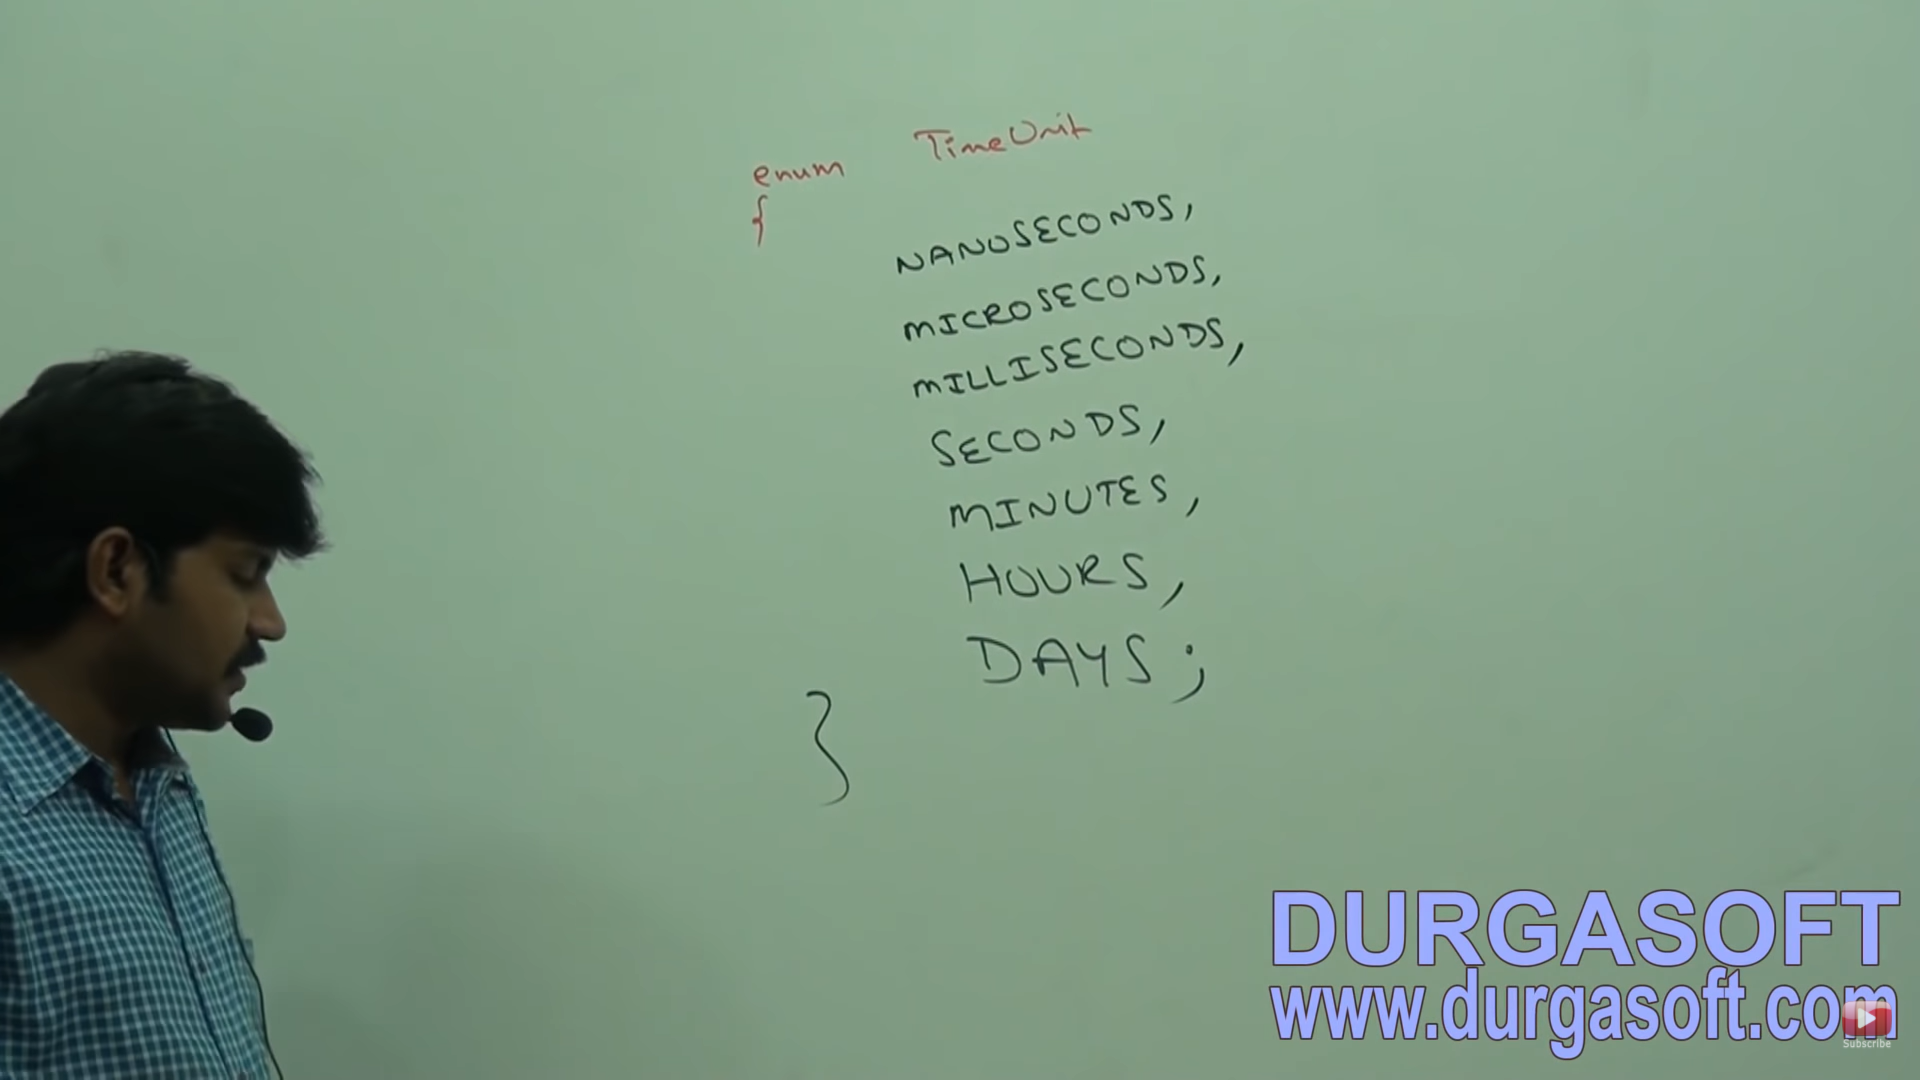 enum TimeUnit
{
NANOSECONDS,
MICROSECONDS,
MILLISECONDS,
SECONDS,
MINUTES,
HOURS,
DAYS;
}
DURGASOFT
www.durgasoft.com
Subscribe